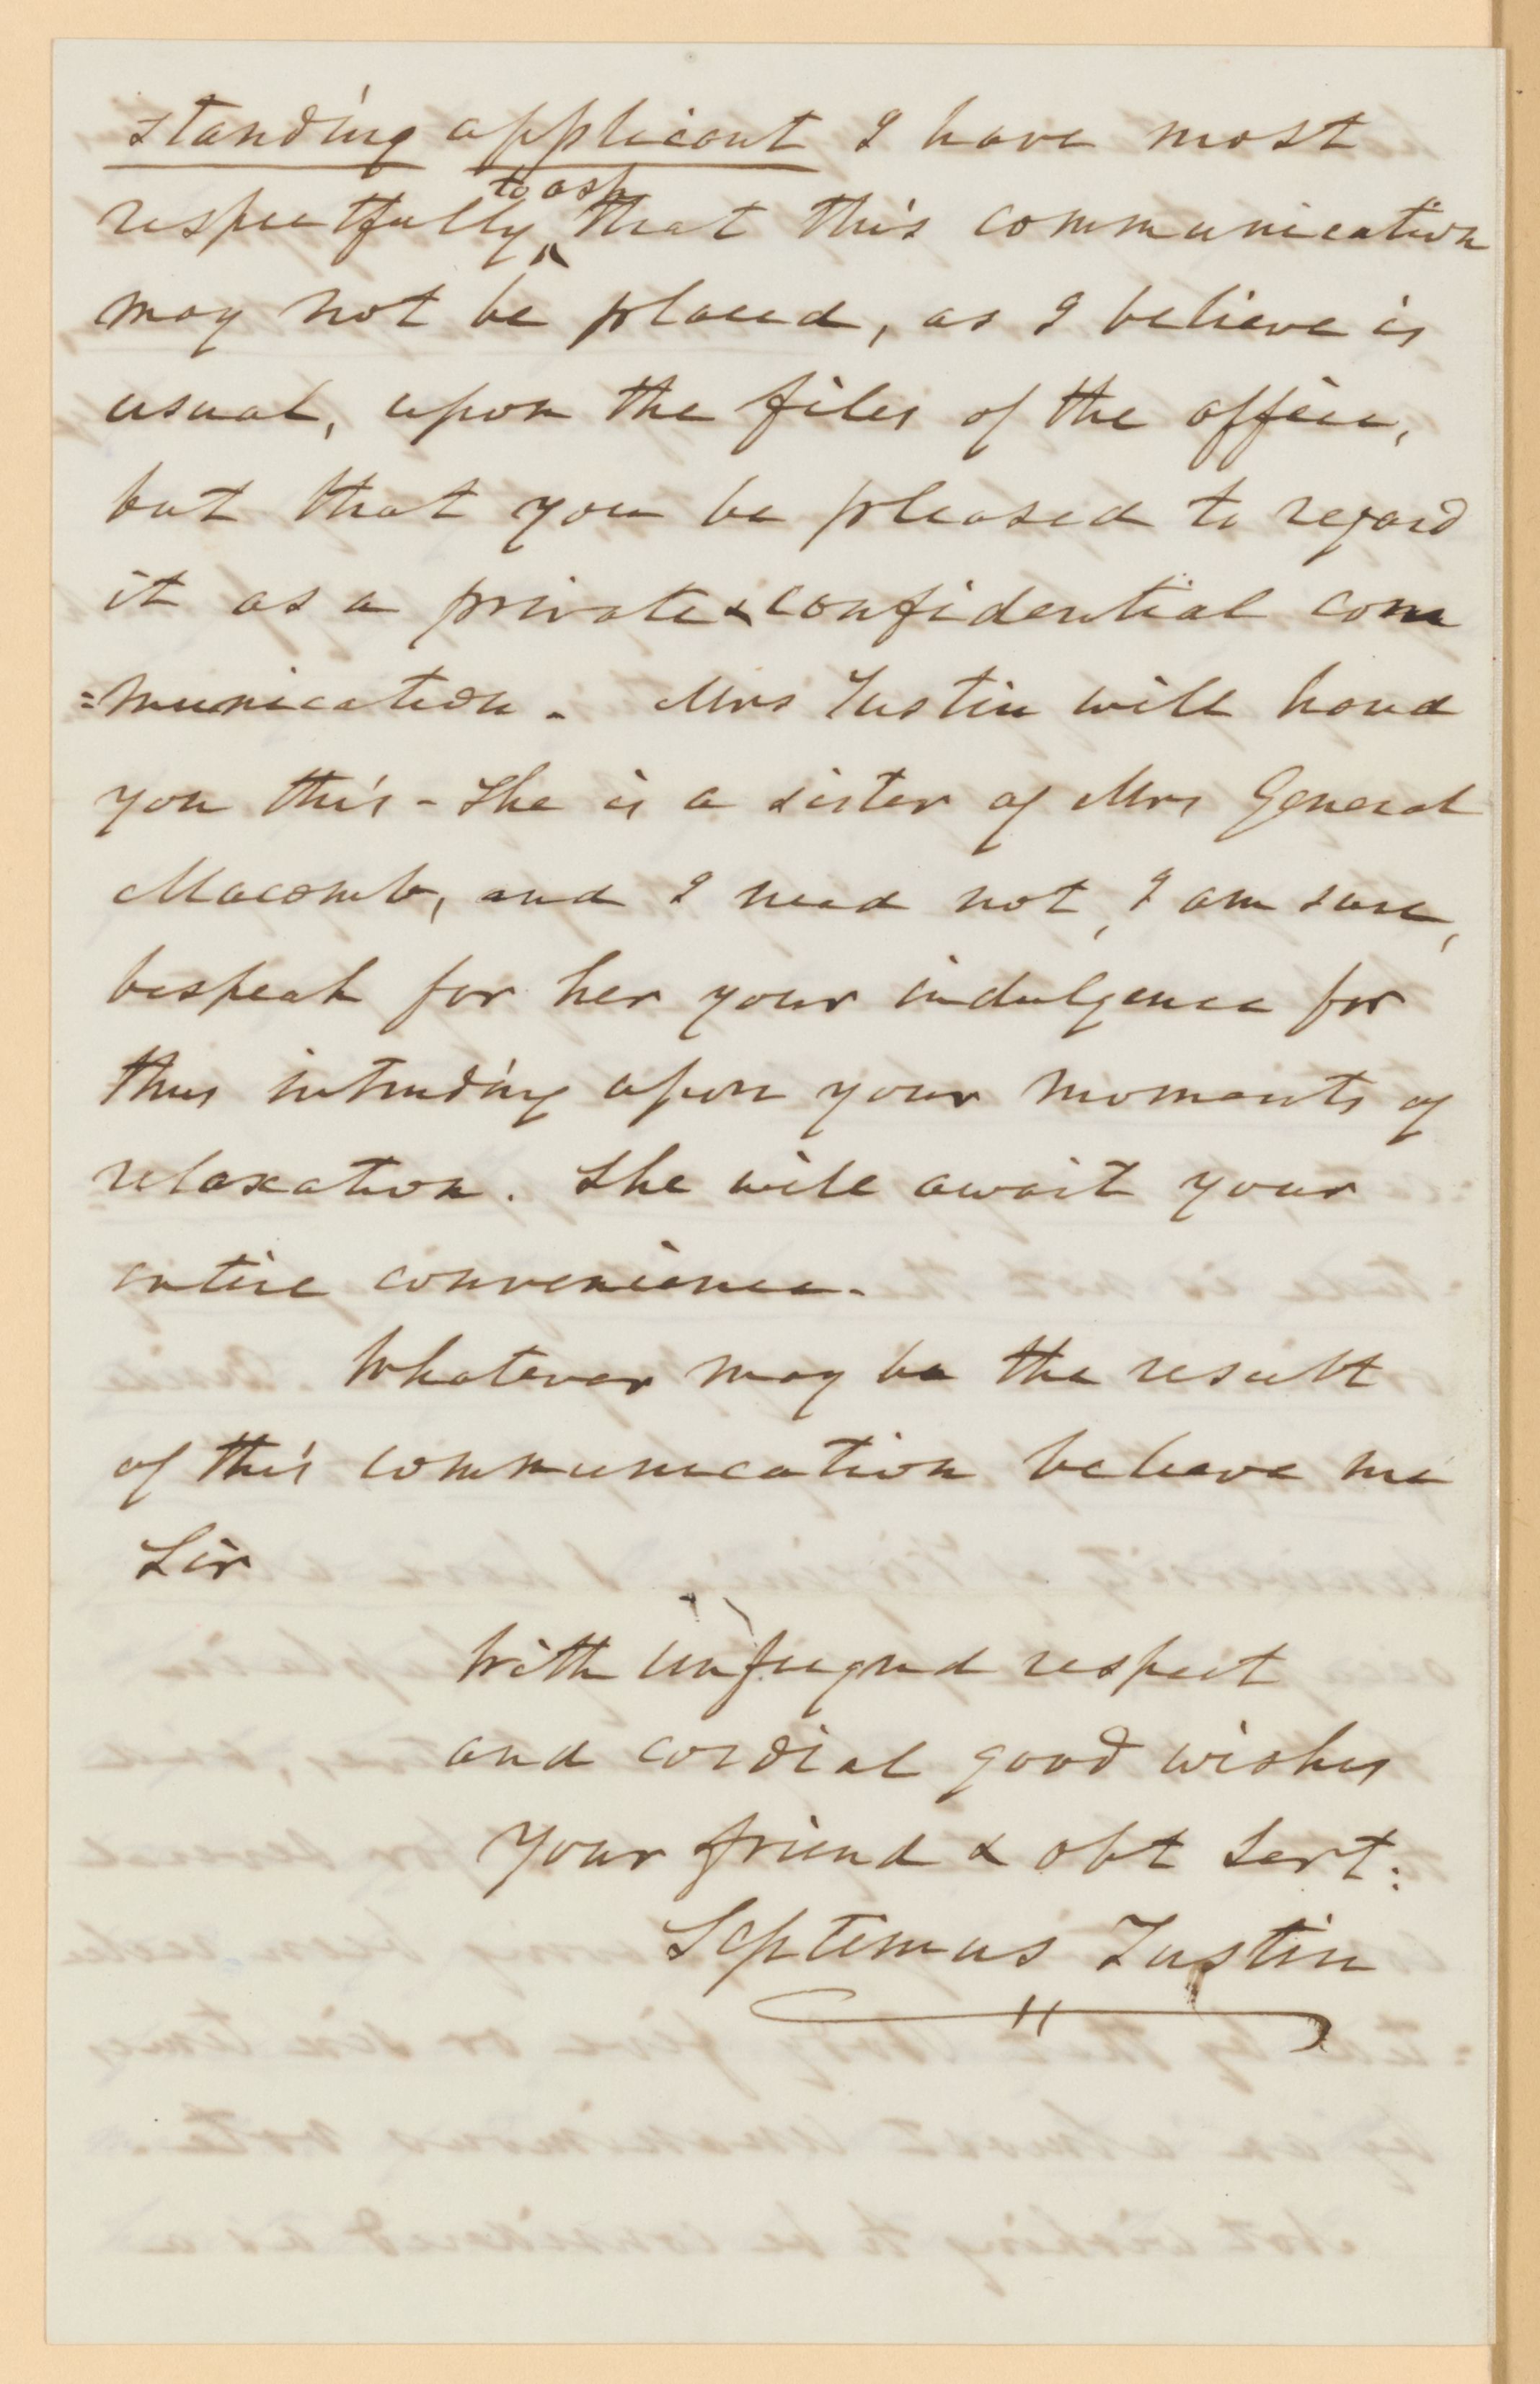 standing applicant I have most
respectfully to ask that this communication
may not be placed, as I believe is
usual, upon the files of the office,
but that you be pleased to regard
it as a private & confidential com
=munication. Mrs Tustin will hand
you this - she is a sister of Mrs General
Macomb, and I need not, I am sure,
bespeak for her your indulgence for
thus intruding upon your moments of
relaxation. She will await your
entire convenience.
Whatever may be the result
of this communication believe me
Sir
With unfeigned respect
and cordial good wishes
Your friend & obt Sert:
Septimus Tustin